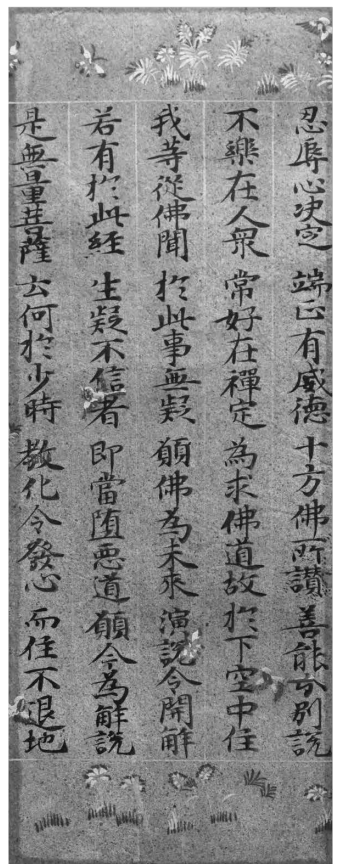 忍辱心決定 端正有威德 十方佛所讃 善能分別説
不樂在人衆 常好在禪定 為求佛道故 於下空中住
我等從佛聞 於此事無疑 願佛為未来 演説令開解
若有於此経 生疑不信者 即當堕悪道 願今為解説
是無量菩薩 云何於少時 教化令發心 而住不退地